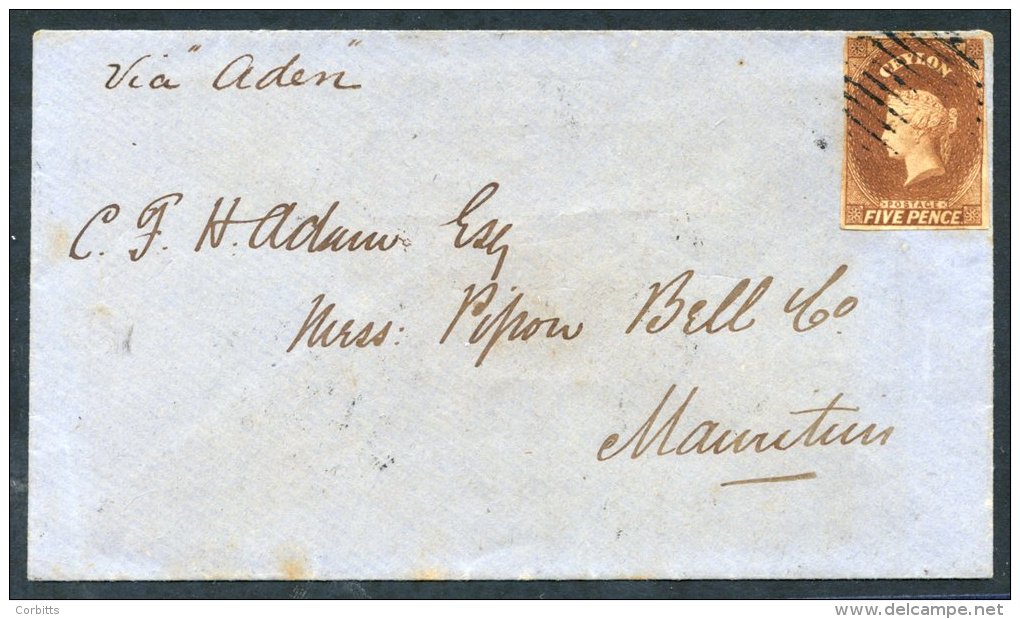 Via "Aden"
CEYLON
POSTAGE
FIVE PENCE
C. F. H. Adam Esq
Mess: Pipon Bell Co
Mauritius
Corbitts
www.delcampe.net